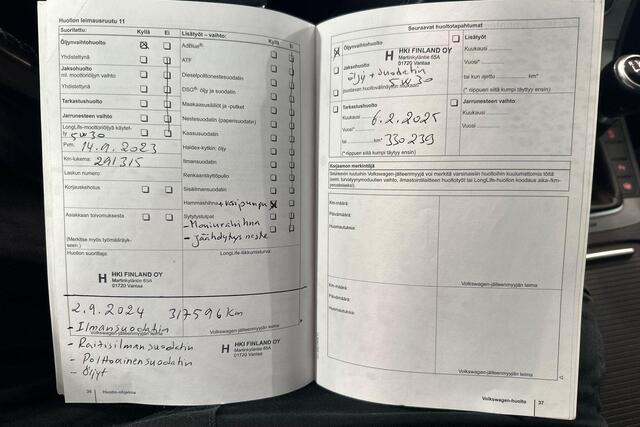 Huollon leimausruutu 11
Suoritettu: Kyllä Ei
Öljynvaihtohuolto
Yhdistettynä
Jaksohuolto
ml. moottoriöljyn vaihto
Yhdistettynä
Tarkastushuolto
Jarrunesteen vaihto
LongLife-moottoriöljyä käytet-
ty 5W30
Pvm. 14.9.2023
Km-lukema: 291315
Laskun numero:
Korjauskehotus
Asiakkaan toivomuksesta
(Merkitse myös työmääräyk-
seen.)
Huollon suorittaja:
H HKI FINLAND OY
Martinkyläntie 65A
01720 Vantaa
Lisätyöt – vaihto: Kyllä Ei
AdBlue®
ATF
Dieselpoltonestesuodatin
DSG® öljy ja suodatin
Maakaasusäiliöt ja -putket
Nestesuodatin (paperisuodatin)
Kaasusuodatin
Haldex-kytkin: öljy
Ilmansuodatin
Renkaantäyttöpullo
Sisäilmansuodatin
Hammashihna + vesipumppu
Sytytystulpat
- Moniurahihna
- Jäähdytysneste
LongLife-liikkumisturva:
2.9.2024 317596 km
- Ilmansuodatin
Volkswagen-jälleenmyyjän leima
- Raitisilmansuodatin
- Polttoainesuodatin
- Öljyt
H HKI FINLAND OY
Martinkyläntie 65A
01720 Vantaa
36 Huolto-ohjelma
Seuraavat huoltotapahtumat
Öljynvaihtohuolto
H HKI FINLAND OY
Martinkyläntie 65A
01720 Vantaa
Jaksohuolto
öljy + suodatin
5W30
joustavan huoltovälinäytön mukaan
Tarkastushuolto
Kuukausi 6.2.2025
Vuosi*
tai km 330239
(* riippuen siitä kumpi täyttyy ensin)
Lisätyöt
Kuukausi
Vuosi*
tai kun ajettu km*
(* riippuen siitä kumpi täyttyy ensin)
Jarrunesteen vaihto:
Kuukausi
Vuosi
Korjaamon merkintöjä
Km-määrä:
Päivämäärä:
Huomautuksia:
Volkswagen-jälleenmyyjän leima
Km-määrä:
Päivämäärä:
Huomautuksia:
Volkswagen-jälleenmyyjän leima
Volkswagen-huolto 37